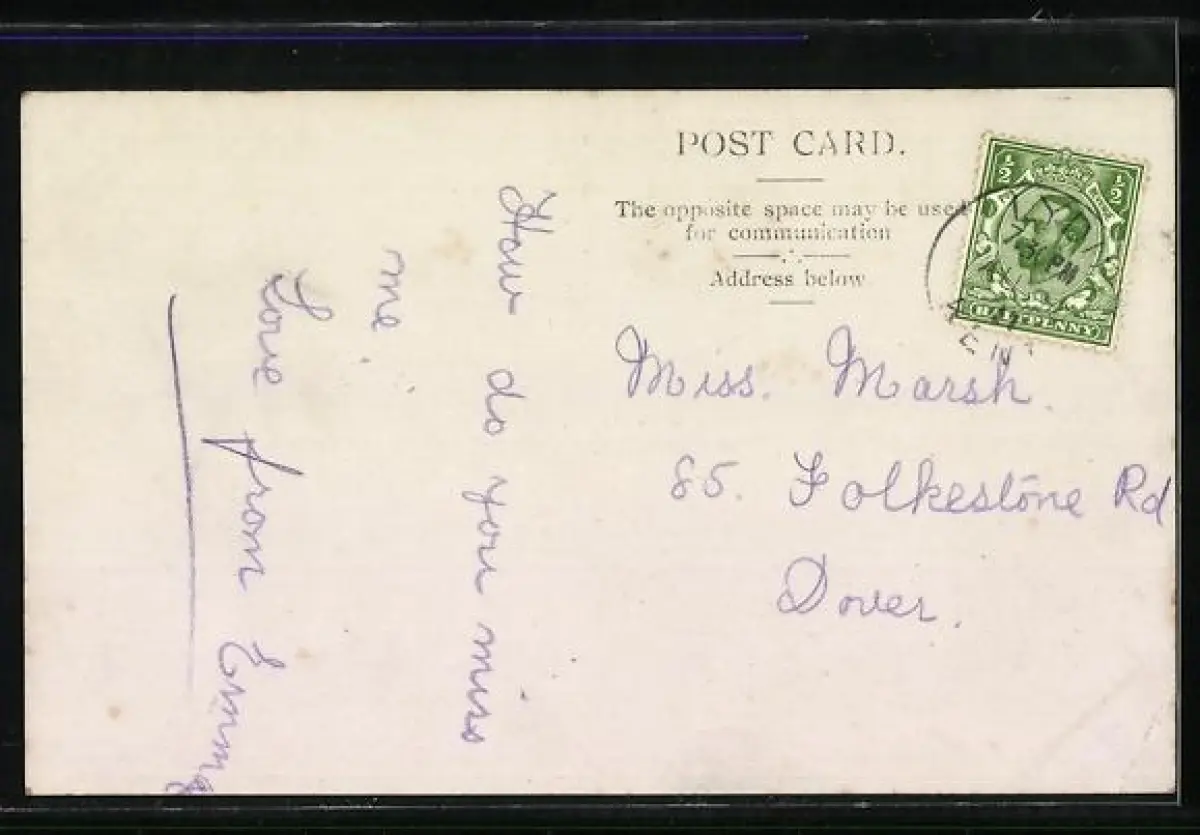 POST CARD.
The opposite space may be used
for communication
Address below
½ ½
HALFPENNY
Miss. Marsh.
85. Folkestone Rd
Dover.
How do you miss
me
Love from Emma